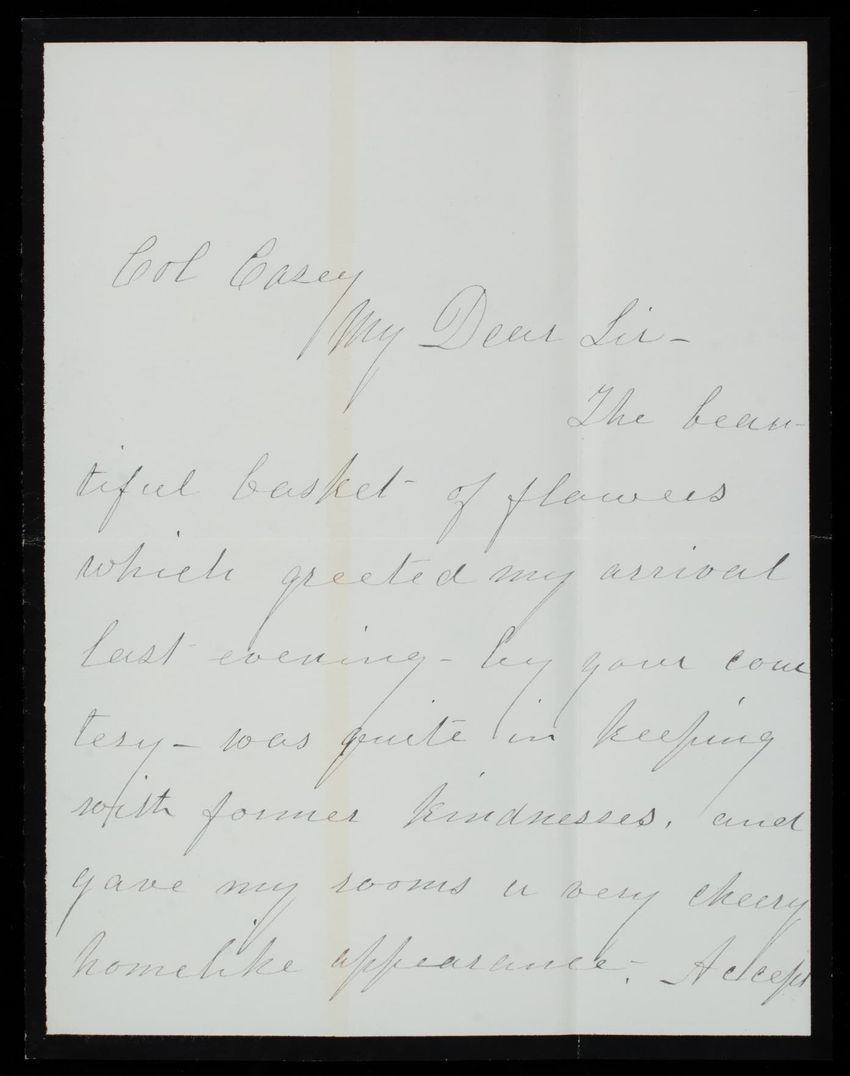 Col Casey
My Dear Sir –
The beau-
tiful basket of flowers
which greeted my arrival
last evening – by your cour
tesy – was quite in keeping
with former kindnesses, and
gave my rooms a very cheery
homelike appearance. Accept